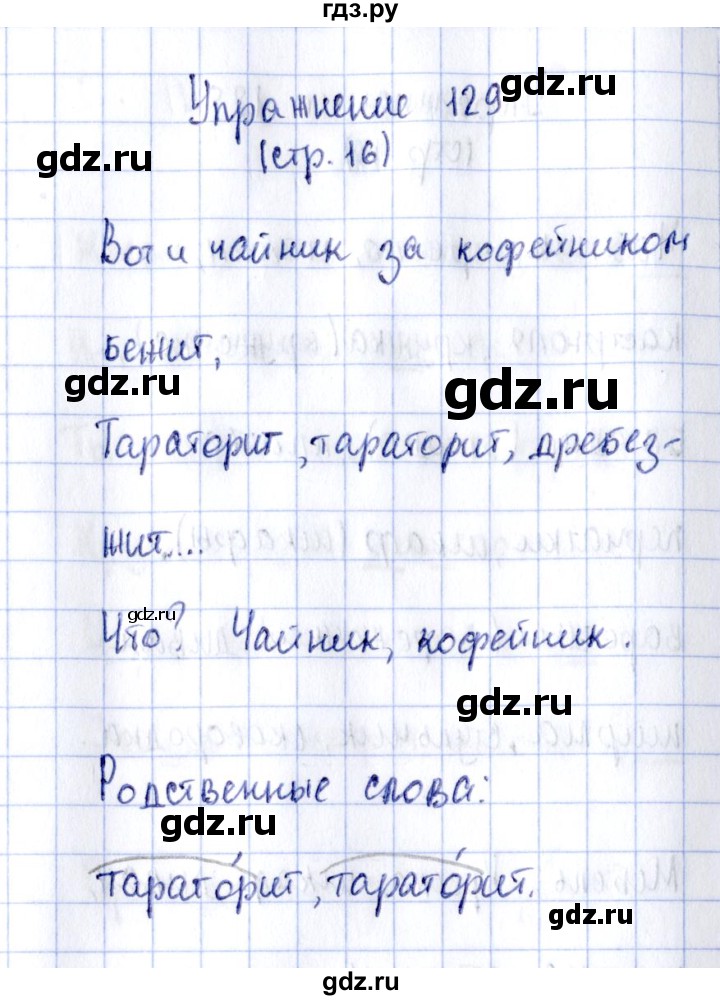 гдз.ру
Упражнение 129
gdz.ru
gdz.ru
(стр. 16)
Вот и чайник за кофейником
бежит,
gdz.ru
gdz.ru
Тараторит, тараторит, дребез-
жит...
gdz.ru
Что? Чайник, кофейник.
gdz.ru
Родственные слова:
gdz.ru
тарато́рит, тарато́рит.
gdz.ru
gdz.ru